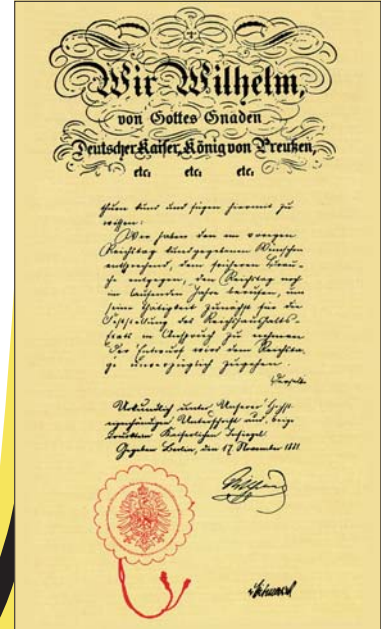 Wir Wilhelm,
von Gottes Gnaden
Deutscher Kaiser, König von Preußen,
etc. etc. etc.
thuen kund und fügen hiermit zu
wissen:
Wir haben den im vorigen
Reichstag kundgegebenen Wünschen
entsprechend, dem früheren Brau-
che entgegen, den Reichstag noch
im laufenden Jahre berufen, um
seine Thätigkeit zunächst für die
Feststellung des Reichshaushalts-
Etats in Anspruch zu nehmen
Der Entwurf wird dem Reichsta-
ge unverzüglich zugehen.
Derselbe
Urkundlich unter Unserer Höchst-
eigenhändigen Unterschrift und beige-
drucktem Kaiserlichen Insiegel
Gegeben Berlin, den 17 November 1881
Wilhelm